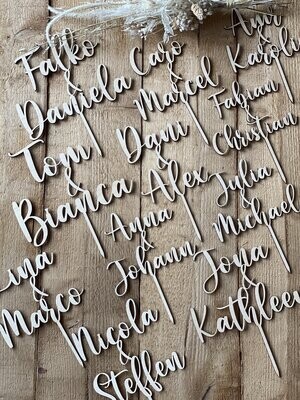 Falko
&
Daniela
Caro
&
Marcel
Anr
&
Karoli
Tom
&
Bianca
Dani
&
Alex
Fabian
&
Christian
Anna
&
Johann
Julia
&
Michael
ina
&
Marco
Nicola
&
Steffen
Jona
&
Kathleen